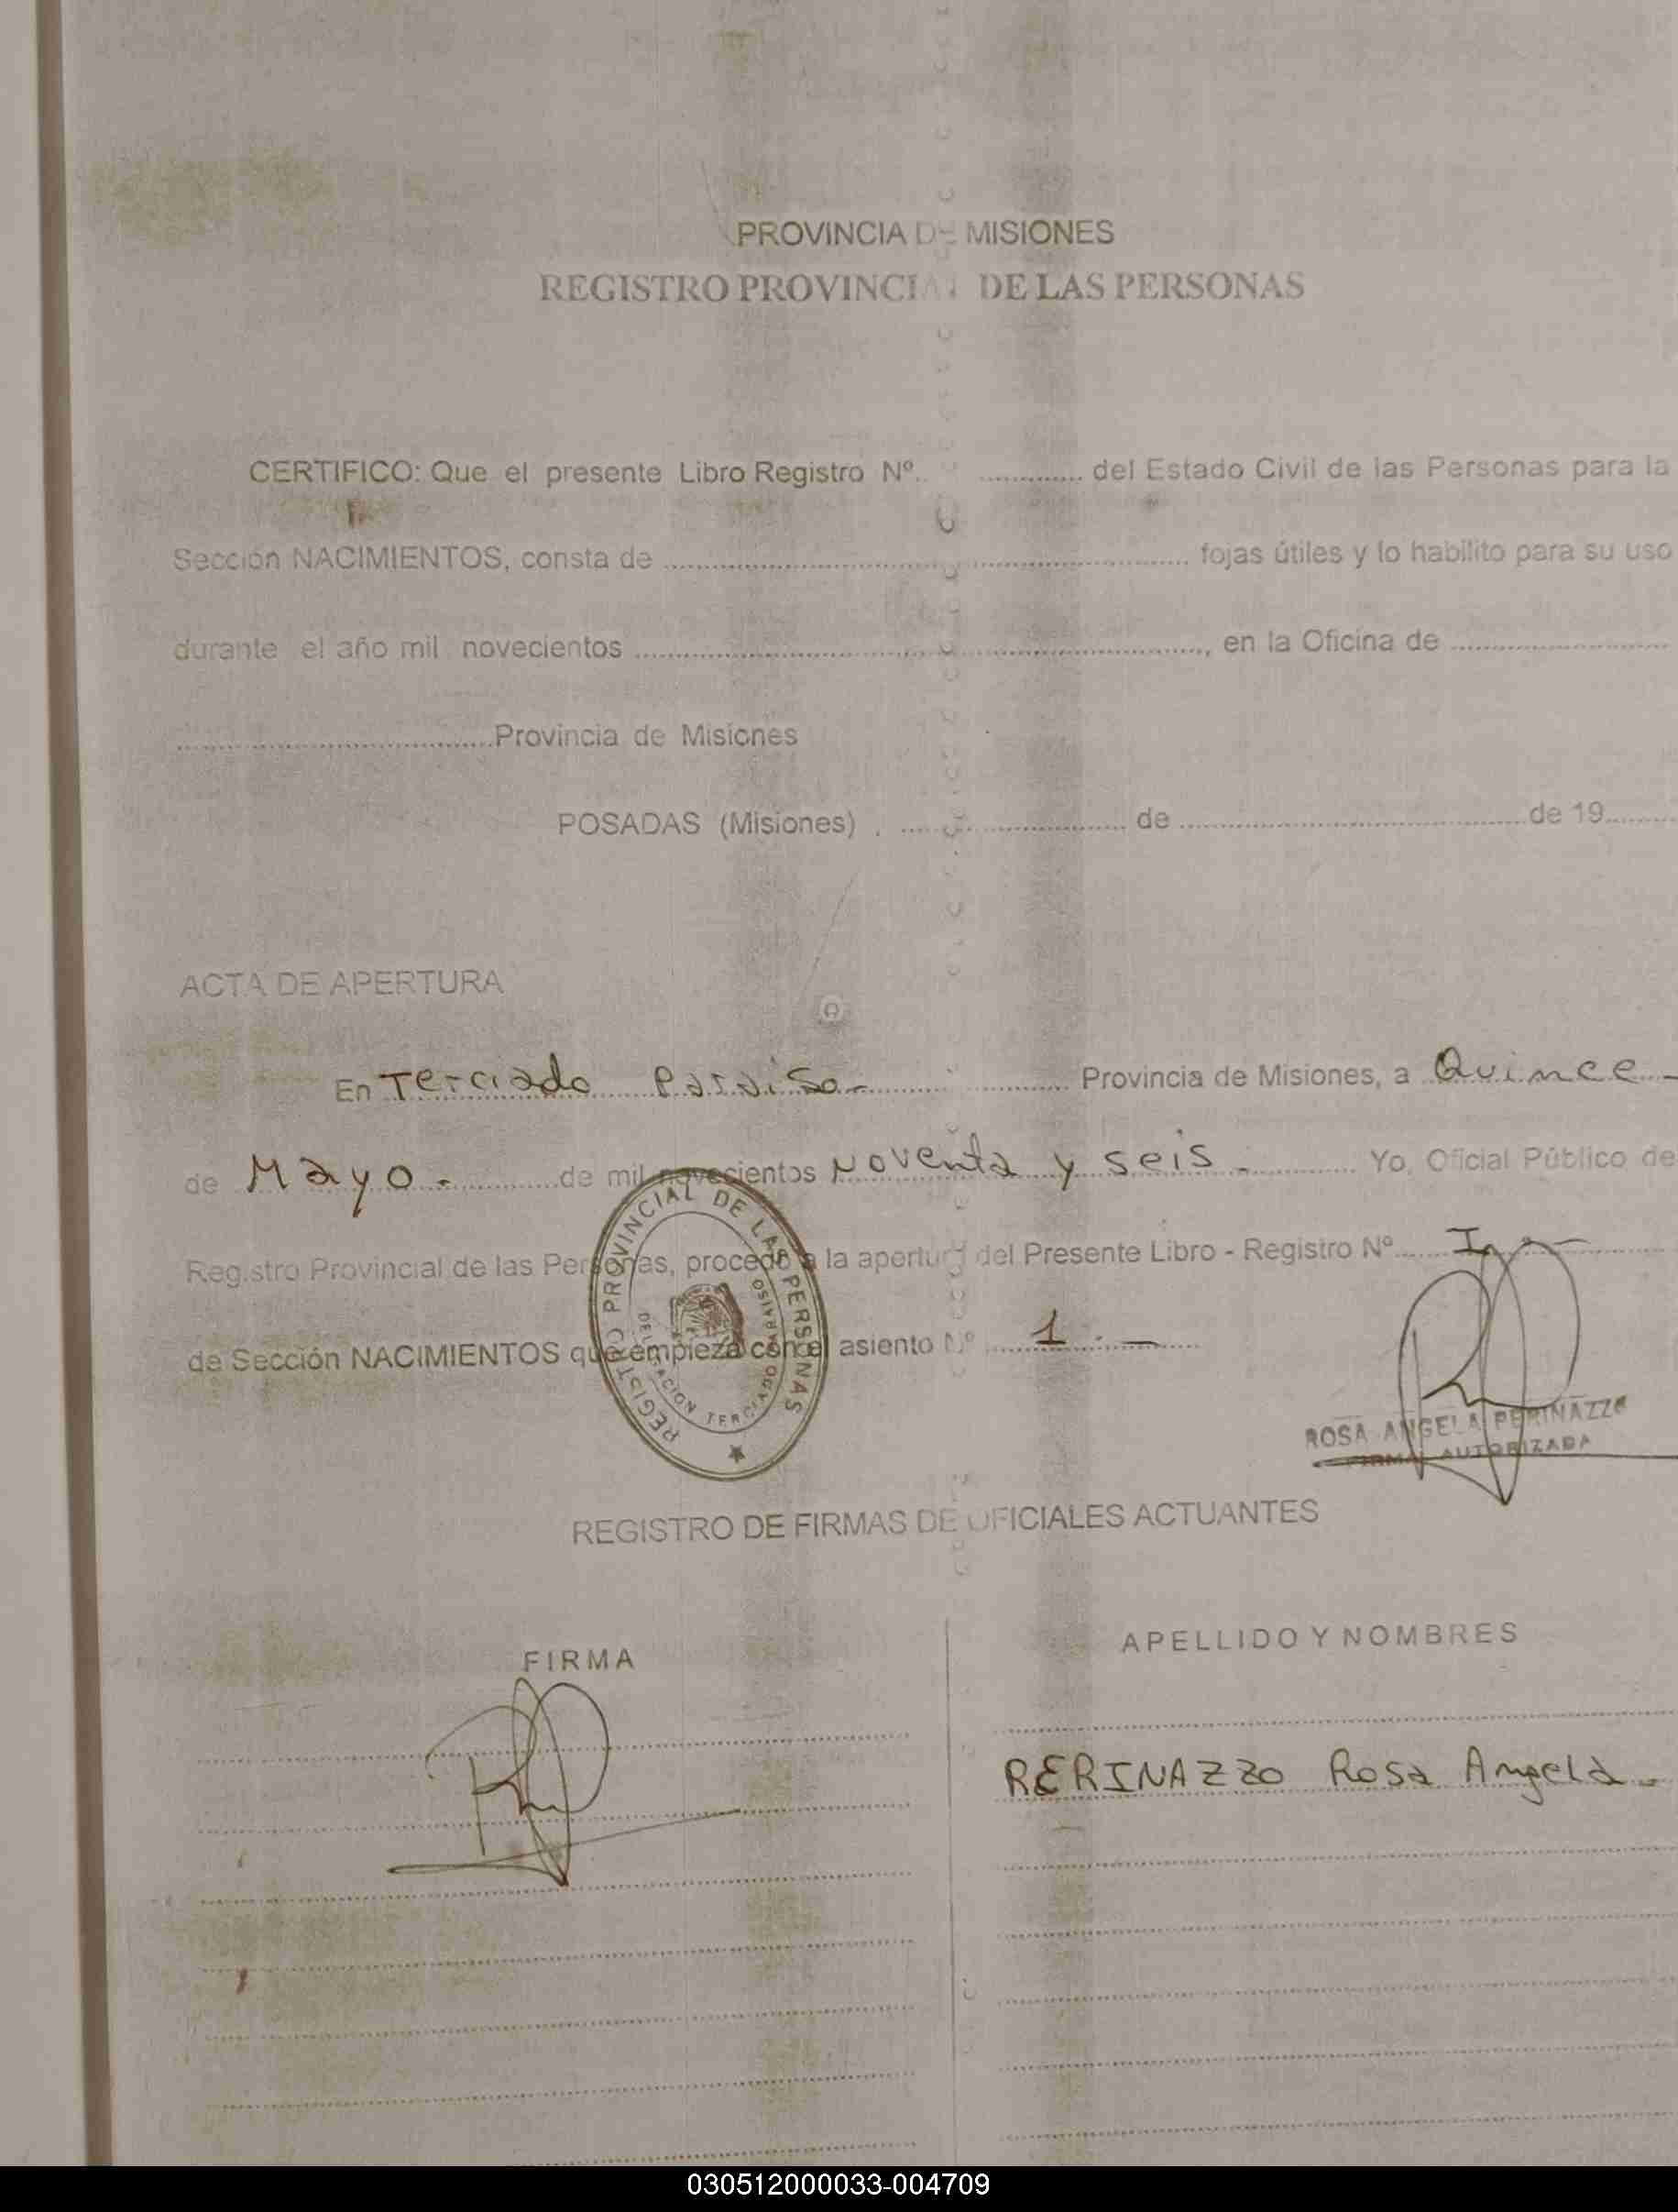 PROVINCIA DE MISIONES
REGISTRO PROVINCIAL DE LAS PERSONAS
CERTIFICO: Que el presente Libro Registro Nº.. ............. del Estado Civil de las Personas para la
Sección NACIMIENTOS, consta de .................................................. fojas útiles y lo habilito para su uso
durante el año mil novecientos .................................................., en la Oficina de ........................
..............................Provincia de Misiones
POSADAS (Misiones) , .......................... de ....................................de 19.........
ACTA DE APERTURA
En Terciado Paraiso.- Provincia de Misiones, a Quince -
de Mayo. de mil novecientos Noventa y seis.- Yo, Oficial Público de
Registro Provincial de las Personas, procedo a la apertura del Presente Libro - Registro Nº I
de Sección NACIMIENTOS que empieza con el asiento Nº 1.-
REGISTRO PROVINCIAL DE LAS PERSONAS
DELEGACION TERCIADO PARAISO
ROSA ANGELA PERINAZZO
FIRMA AUTORIZADA
REGISTRO DE FIRMAS DE OFICIALES ACTUANTES
FIRMA
APELLIDO Y NOMBRES
RERINAZZO Rosa Angela.-
030512000033-004709